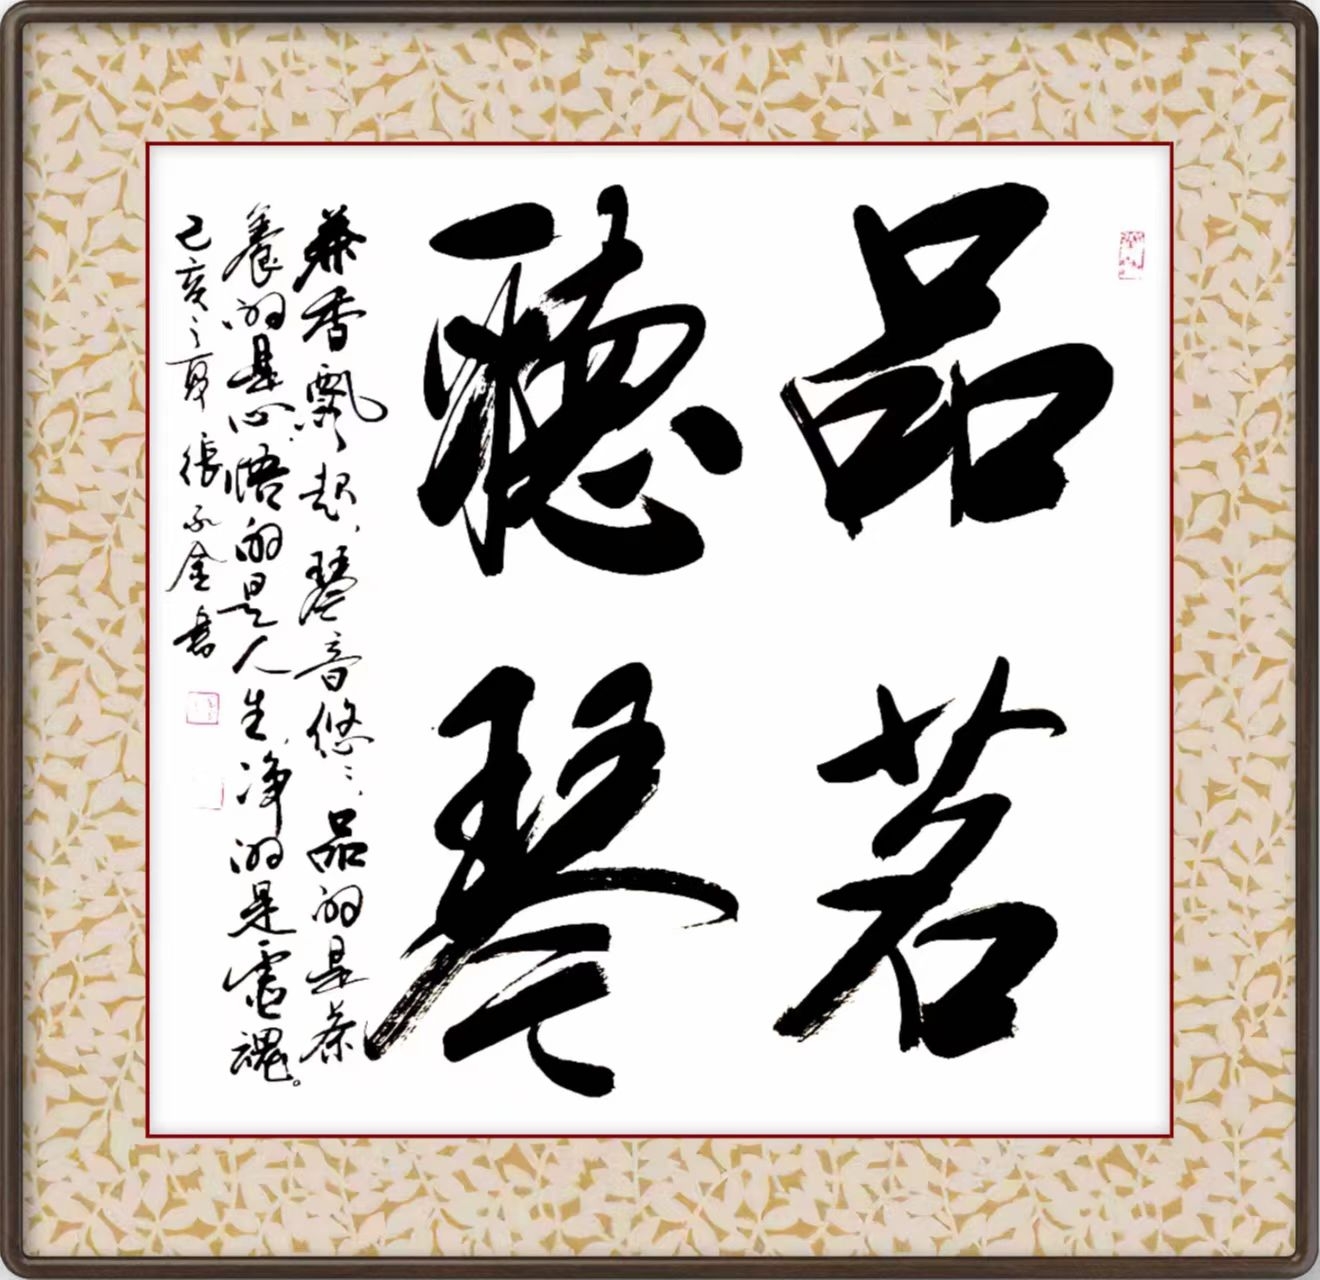 品茗
聽琴
茶香飘起,琴音悠悠,品的是茶
養的是心,悟的是人生,净的是靈魂。
己亥之夏 張金書